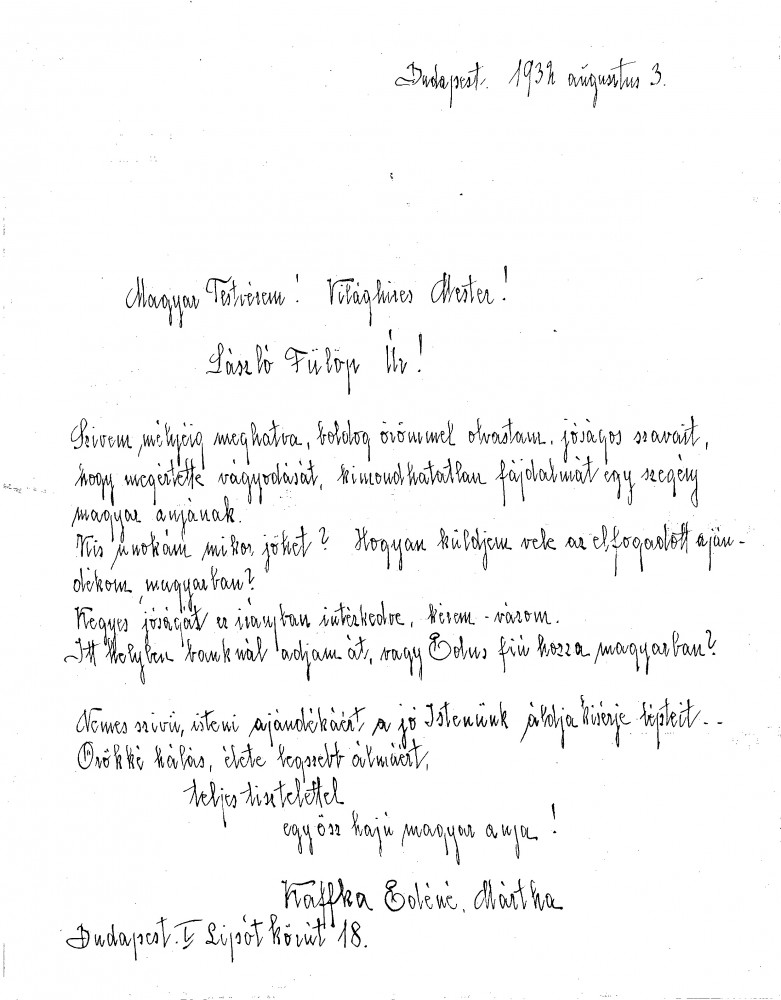 Budapest. 1932 augusztus 3.
Magyar Testvérem! Világhires Mester!
László Fülöp Úr!
Szivem mélyéig meghatva, boldog örömmel olvastam, jóságos szavait,
hogy megértette vágyodását, kimondhatatlan fájdalmát egy szegény
magyar anyának.
Kis unokám mikor jöhet? Hogyan küldjem vele az elfogadott aján-
dékom magyarban?
Kegyes jóságát ez irányban intézkedve, kérem - várom.
Itt helyben banknál adjam át, vagy Edus fiú hozza magyarban?
Nemes szivü, isteni ajándékáért a jó Istenünk áldja kisérje lépteit..
Örökké hálás, élete legszebb álmáért,
teljes tisztelettel
egy ősz hajú magyar anya!
Kaffka Edéné, Mártha
Budapest. V. Lipót körút 18.